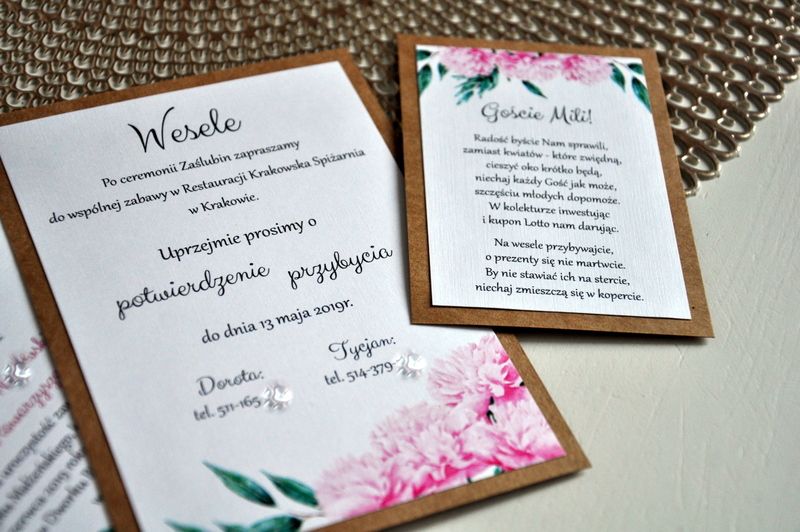 Wesele
Po ceremonii Zaślubin zapraszamy
do wspólnej zabawy w Restauracji Krakowska Spiżarnia
w Krakowie.
Uprzejmie prosimy o
potwierdzenie przybycia
do dnia 13 maja 2019r.
Dorota:
tel. 511-165
Tycjan:
tel. 514-379-
Goście Mili!
Radość byście Nam sprawili,
zamiast kwiatów - które zwiędną,
cieszyć oko krótko będą,
niechaj każdy Gość jak może,
szczęściu młodych dopomoże.
W kolekturze inwestując
i kupon Lotto nam darując.
Na wesele przybywajcie,
o prezenty się nie martwcie.
By nie stawiać ich na stercie,
niechaj zmieszczą się w kopercie.